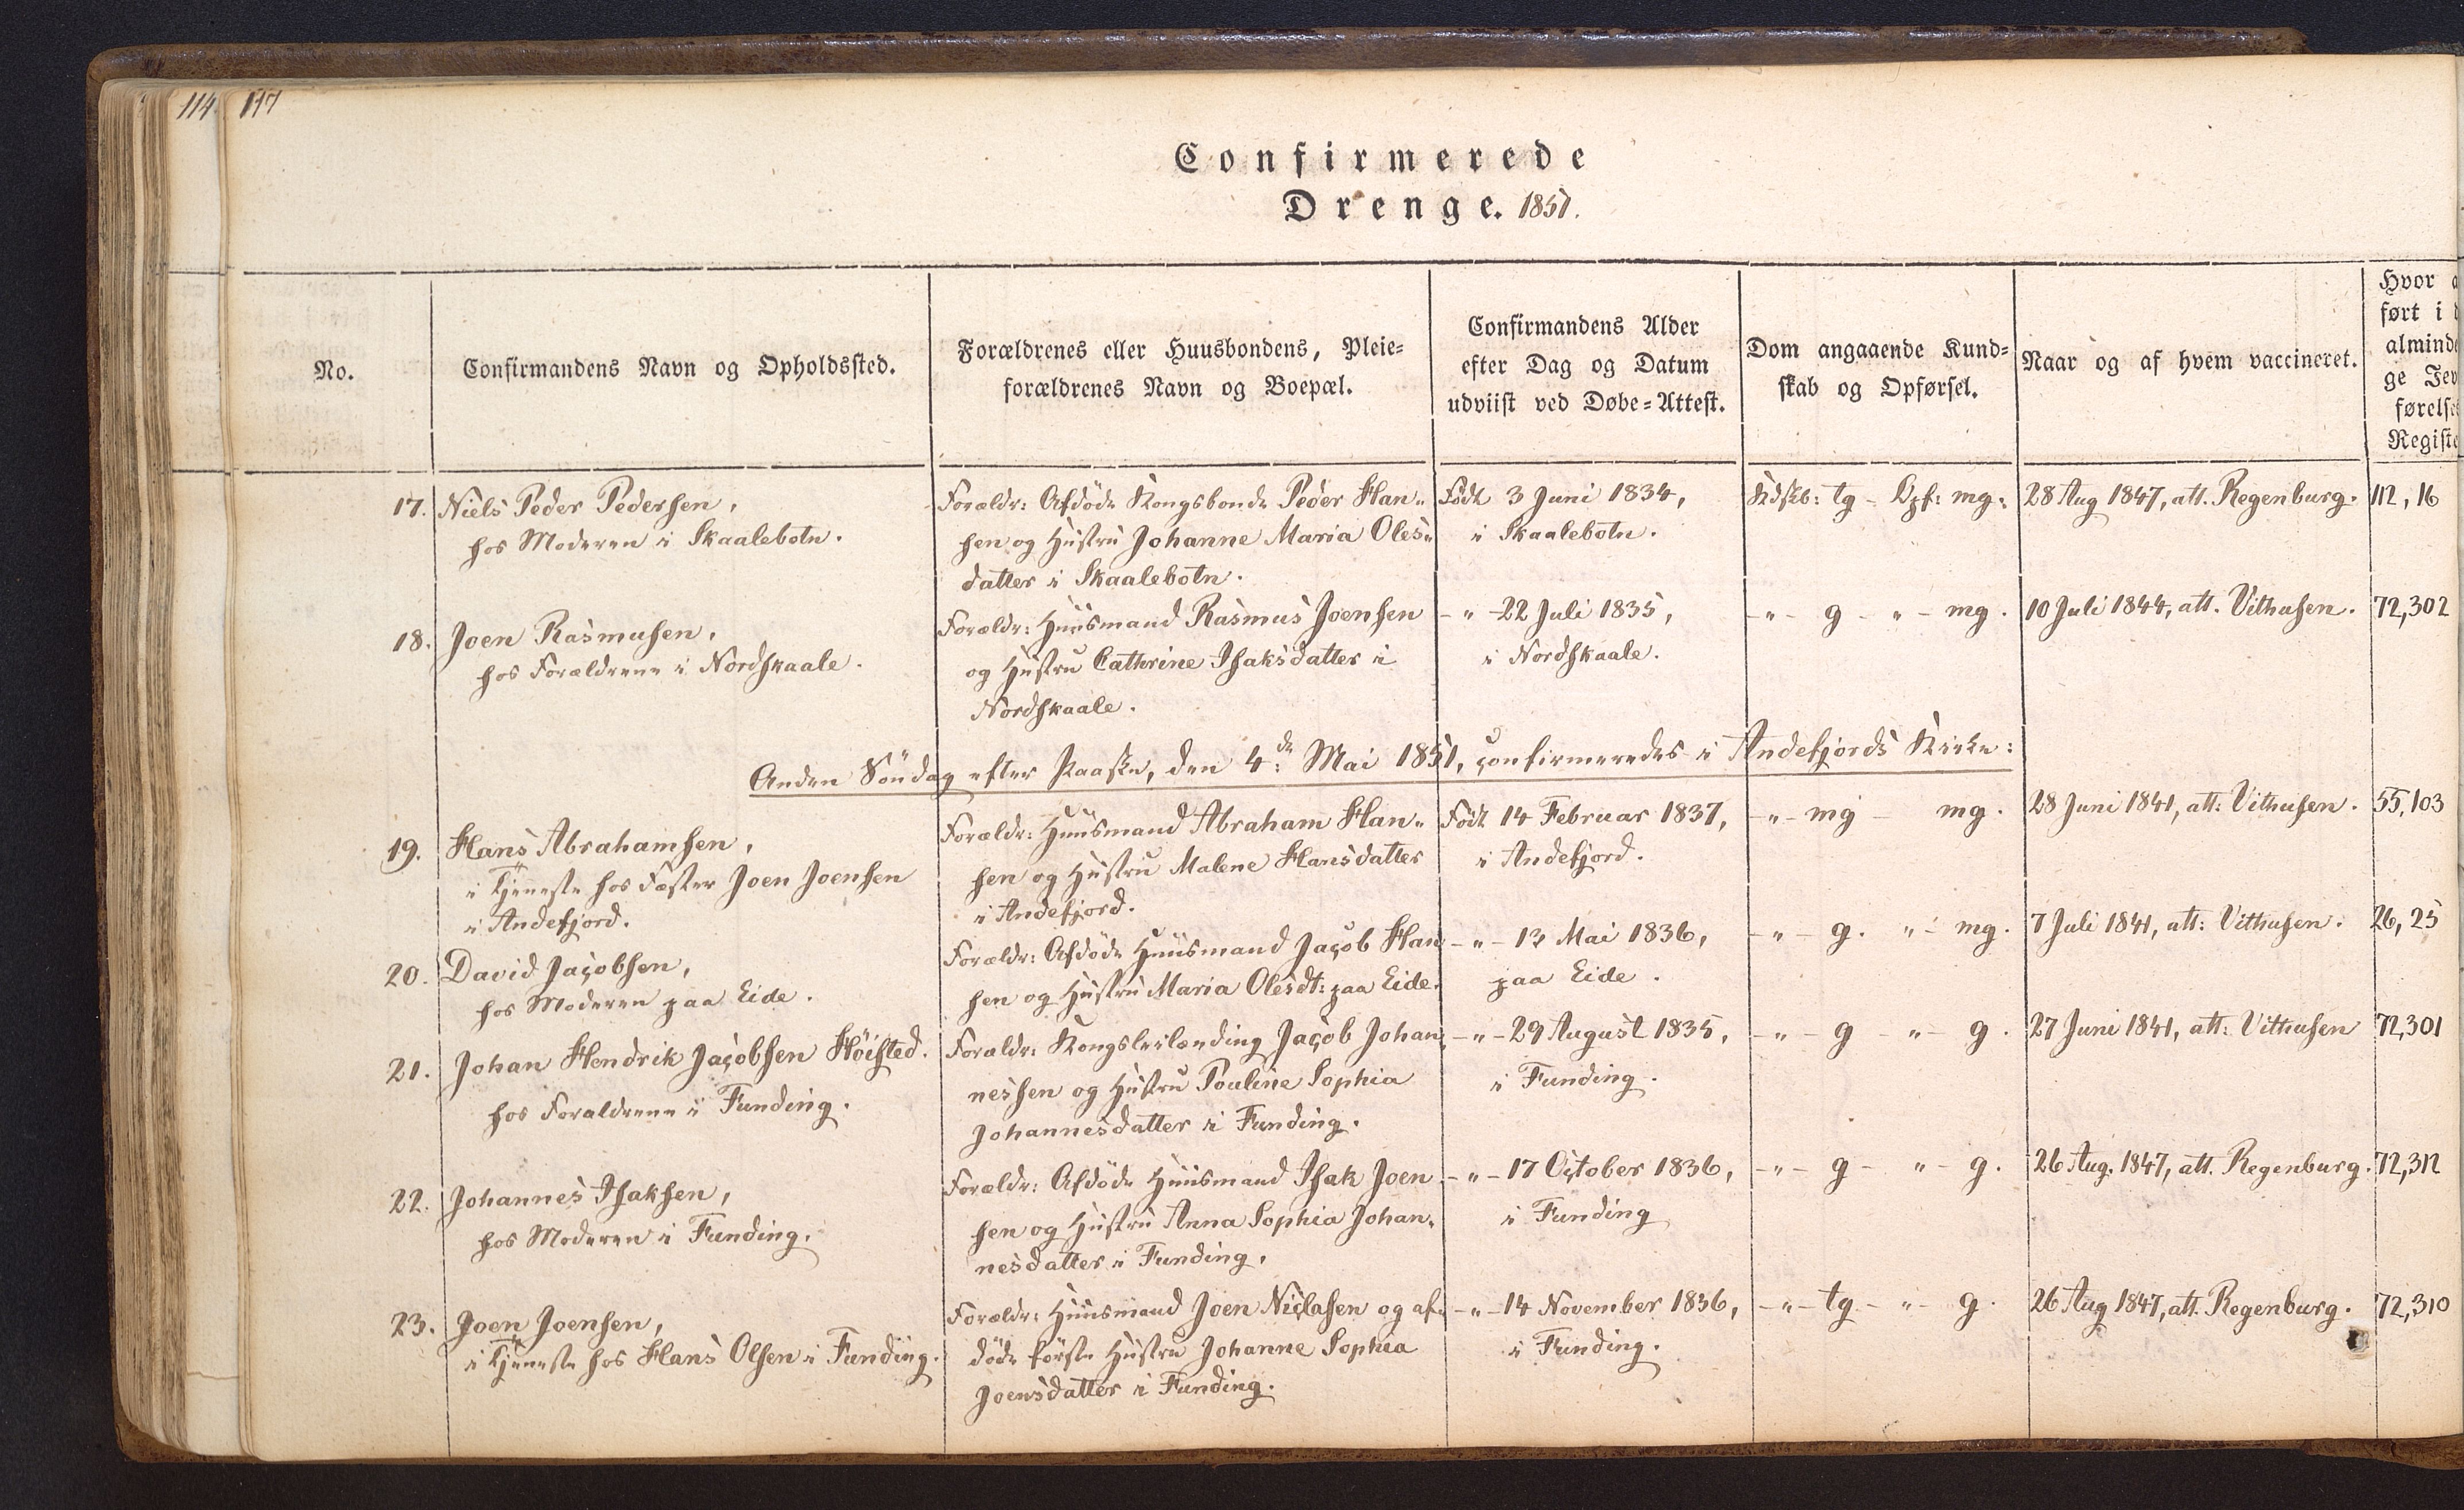 114. 117
Confirmerede
Drenge. 1851.
No.
Confirmandens Navn og Opholdssted.
Forældrenes eller Huusbondens, Pleie=
forældrenes Navn og Boepæl.
Confirmandens Alder
efter Dag og Datum
udviist ved Døbe=Attest.
Dom angaaende Kund=
skab og Opførsel.
Naar og af hvem vaccineret.
Hvor
ført i
alminde
ge Jev
førelse
Registe
17.
Niels Peder Pedersen,
hos Moderen i Skaalebotn.
Forældr: Afdöde Kongsbonde Peder Han„
sen og Hustru Johanne Maria Oles„
datter i Skaalebotn.
Födt 3 Juni 1834,
i Skaalebotn.
Kdskb: tg - Opf: mg.
28 Aug 1847, att. Regenburg.
112, 16
18.
Joen Rasmusen,
hos Forældrene i Nordskaale.
Forældr: Huusmand Rasmus Joensen
og Hustru Cathrine Isaksdatter i
Nordskaale.
- „ - 22 Juli 1835,
i Nordskaale.
- „ - g - „ - mg.
10 Juli 1844, att. Vithusen.
72,302
Anden Söndag efter Paaske, den 4de Mai 1851, confirmeredes i Andefjords Kirke:
19.
Hans Abrahamsen,
i Tjeneste hos Fæster Joen Joensen
i Andefjord.
Forældr: Huusmand Abraham Han„
sen og Hustru Malene Hansdatter
i Andefjord.
Födt 14 Februar 1837,
i Andefjord.
- „ - mg - mg.
28 Juni 1841, att: Vithusen.
55,103
20.
David Jacobsen,
hos Moderen paa Eide.
Forældr: Afdöde Huusmand Jacob Han
sen og Hustru Maria Olesdt: paa Eide.
- „ - 13 Mai 1836,
paa Eide.
- „ - g. „ - mg.
7 Juli 1841, att: Vithusen.
26, 25
21.
Johan Hendrik Jacobsen Höisted.
hos Forældrene i Funding.
Forældr: Kongsleilænding Jacob Johan„
nessen og Hustru Pouline Sophia
Johannesdatter i Funding.
- „ - 29 August 1835,
i Funding.
- „ - g - „ - g.
27 Juni 1841, att: Vithusen
72,301
22.
Johannes Isaksen,
hos Moderen i Funding.
Forældr: Afdöde Huusmand Isak Joen
sen og Hustru Anna Sophia Johan„
nesdatter i Funding.
- „ - 17 October 1836,
i Funding
- „ - g - „ - g.
26 Aug. 1847, att. Regenburg.
72,312
23.
Joen Joensen,
i Tjeneste hos Hans Olsen i Funding.
Forældr: Huusmand Joen Niclasen og af„
döde förste Hustru Johanne Sophia
Joensdatter i Funding.
- „ - 14 November 1836,
i Funding.
- „ - tg - „ - g.
26 Aug 1847, att. Regenburg.
72,310